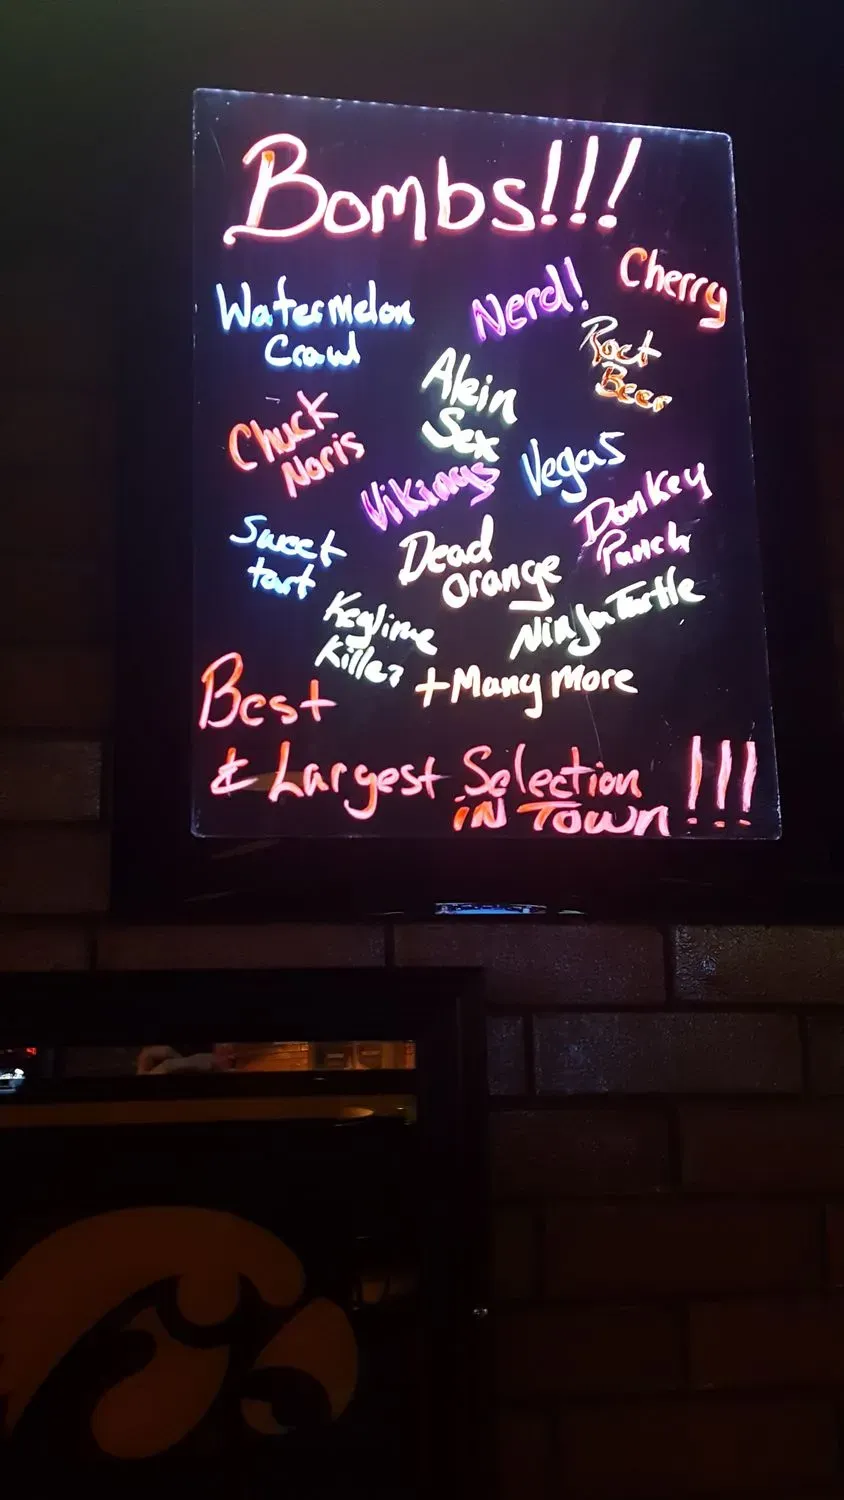 Bombs!!!
Cherry
Nerd!
Watermelon
Crawl
Root
Beer
Alein
Sex
Chuck
Noris
Vegas
Vikings
Donkey
Punch
Sweet
tart
Dead
Orange
Keylime
Killer
Ninja Turtle
+Many More
Best
& Largest Selection !!!
iN Town